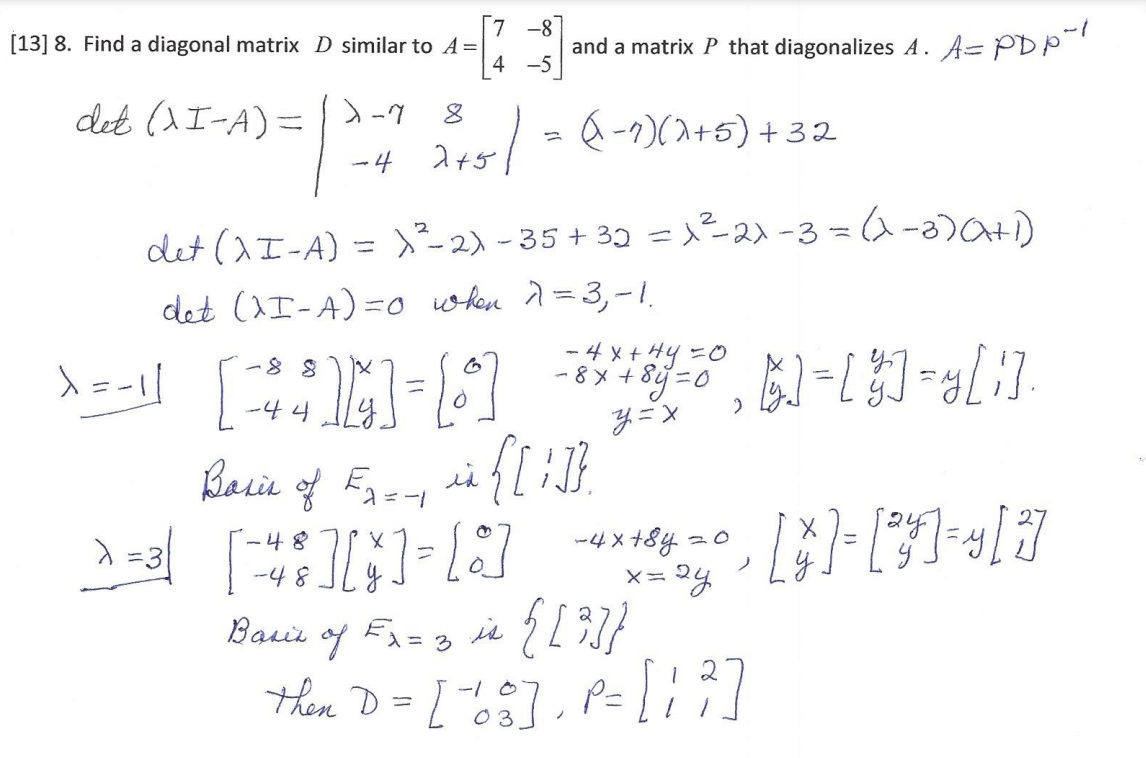 [13] 8. Find a diagonal matrix D similar to A = [7 -8; 4 -5] and a matrix P that diagonalizes A. A = PDP⁻¹
det (λI-A) = |λ-7 8; -4 λ+5| = (λ-7)(λ+5) + 32
det (λI-A) = λ²-2λ-35+32 = λ²-2λ-3 = (λ-3)(λ+1)
det (λI-A) = 0 when λ = 3, -1.
λ = -1 [-8 8; -4 4][x; y] = [0; 0] -4x+4y=0 -8x+8y=0 y=x , [x; y] = [y; y] = y[1; 1].
Basis of E_λ=-1 is {[1; 1]}.
λ = 3 [-4 8; -4 8][x; y] = [0; 0] -4x+8y=0 x=2y , [x; y] = [2y; y] = y[2; 1]
Basis of E_λ=3 is {[2; 1]}
then D = [-1 0; 0 3], P = [1 2; 1 1]